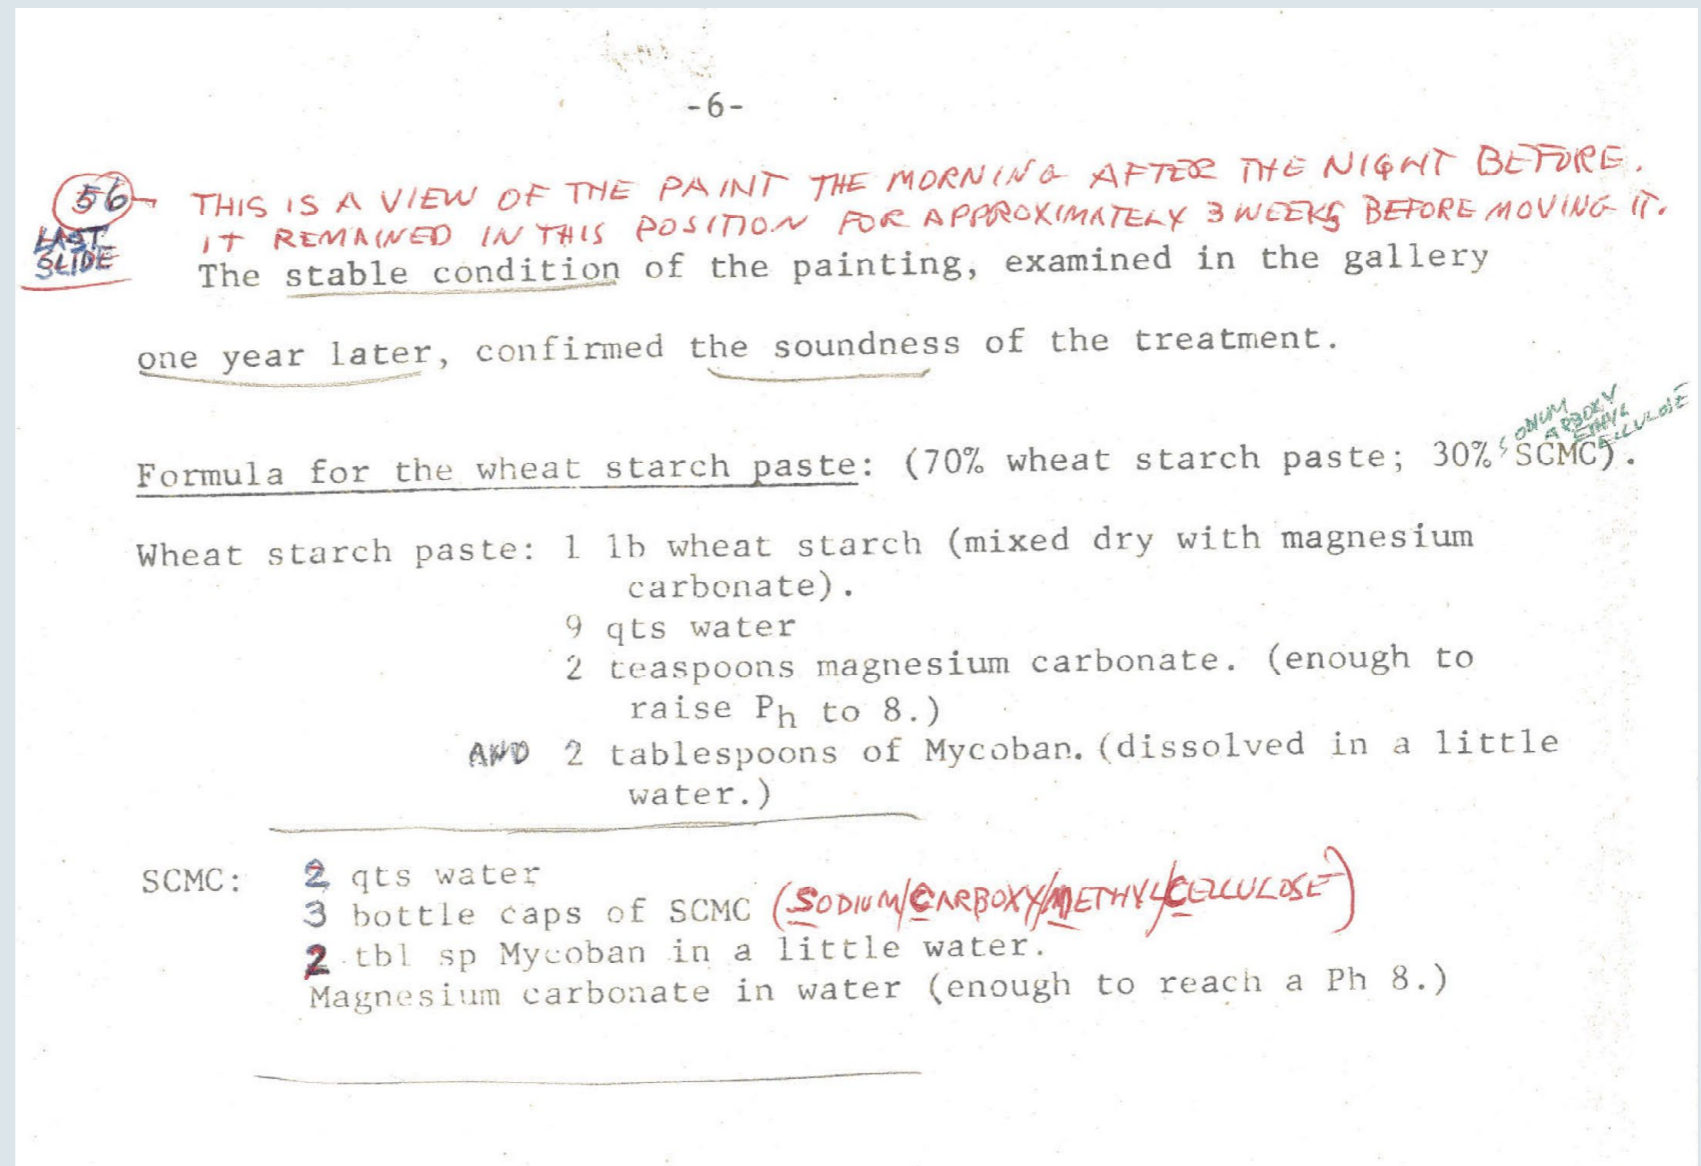 -6-
56 THIS IS A VIEW OF THE PAINT THE MORNING AFTER THE NIGHT BEFORE.
LAST IT REMAINED IN THIS POSITION FOR APPROXIMATELY 3 WEEKS BEFORE MOVING IT.
SLIDE
The stable condition of the painting, examined in the gallery
one year later, confirmed the soundness of the treatment.
SODIUM
CARBOXY
METHYL
CELLULOSE
Formula for the wheat starch paste: (70% wheat starch paste; 30% SCMC).
Wheat starch paste: 1 lb wheat starch (mixed dry with magnesium
carbonate).
9 qts water
2 teaspoons magnesium carbonate. (enough to
raise Ph to 8.)
AND 2 tablespoons of Mycoban. (dissolved in a little
water.)
SCMC: 2 qts water
3 bottle caps of SCMC (SODIUM/CARBOXY/METHYL/CELLULOSE)
2 tbl sp Mycoban in a little water.
Magnesium carbonate in water (enough to reach a Ph 8.)